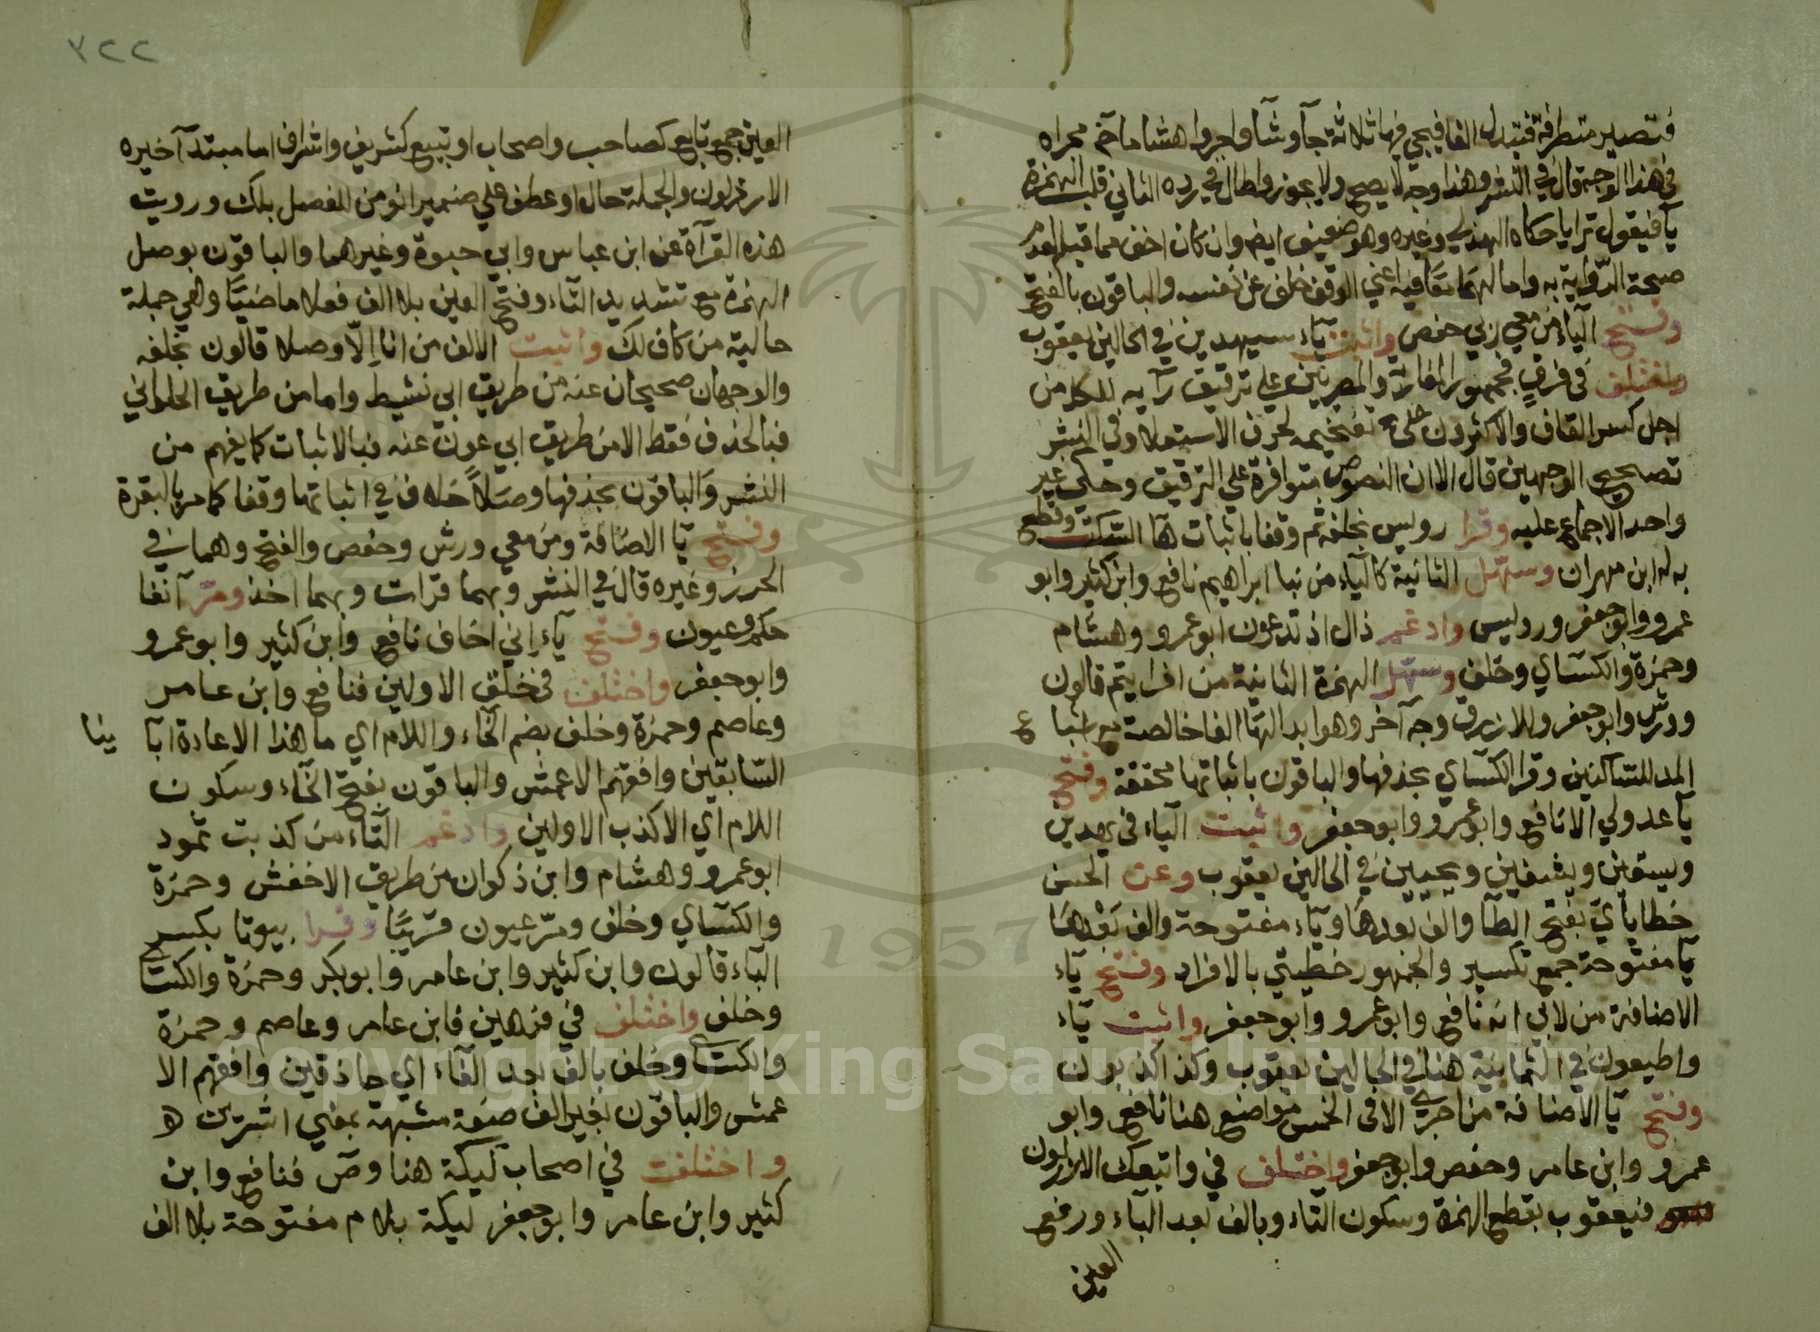 فتصير متطرفة فتبدل الفا فيجي فيها ثلاثة جآ وشآ واجروا هشاما مجراه
في هذا الوجه قال في النشر وهذا وجه لا يصح ولا يجوز واطال في رده الثاني قلب الهمزة
يآ فيقول ترايا حكاه الهذلي وغيره وهو ضعيف ايضا وان كان اخف مما قبله لعدم
صحة الرواية به واما لهما معا فيه اعني الوقف خلف عن نفسه والباقون بالفتح
وفتح الياء من معي ربي حفص واثبت يآء سيهدين في الحالين يعقوب
واختلف في فرق فجمهور المغاربة والمصريين على ترقيق رآيه للكل من
اجل كسر القاف والاكثرون على تفخيمه لحرف الاستعلا وفي النشر
تصحيح الوجهين قال الا ان النصوص متوافرة علي الترقيق وحكي غير
واحد الاجماع عليه وقرا رويس بخلفه ثم وقفا باثبات هآ السكت وقطع
به له ابن مهران وسهل الثانية كالياء من نبا ابراهيم نافع وابن كثير وابو
عمرو وابوجعفر ورويس وادغم ذال اذ تدعون ابوعمرو وهشام
وحمزة والكسآي وخلف وسهل الهمزة الثانية من افرايتم قالون
وورش وابوجعفر وللازرق وجه آخر وهو ابدالها الفا خالصة مع اشبا ع
المد للساكنين وقرا الكسآي بحذفها والباقون باثباتها محققة وفتح
يآ عدولي الا نافع وابوعمرو وابوجعفر واثبت الياء في يهدين
ويسقين ويشفين ويحيين في الحالين يعقوب وعن الحسن
خطاياي بفتح الطآ والف بعدها ويآء مفتوحة والف بعدها
يآ مفتوحة جمع تكسير والجمهور خطيتي بالافراد وفتح يآء
الاضافة من لابي انه نافع وابوعمرو وابوجعفر واثبت يآء
واطيعون في الثمانية هنا في الحالين يعقوب وكذا كذبون
وفتح يآ الاضافة من اجري الا في الخمس مواضع هنا نافع وابو
عمرو وابن عامر وحفص وابوجعفر واختلف في واتبعك الارذلون
فيعقوب بقطع الهمزة وسكون التاء وبالف بعد البآء ورفع
العين
٣٢٢
العين جمع تابع كصاحب واصحاب او تبيع كشريف واشراف اما مبتدآ خبره
الارذلون والجملة حال او عطف علي ضمير انومن للفصل بلك ورويت
هذه القرآة عن ابن عباس وابي حيوة وغيرهما والباقون بوصل
الهمزة مع تشديد التاء وفتح العين بلا الف فعلا ماضيا وهي جملة
حالية من كاف لك واثبت الالف من انا الا وصلا قالون بخلفه
والوجهان صحيحان عنه من طريق ابي نشيط واما من طريق الحلواني
فبالحذف فقط الا من طريق ابي عون عنه فبالاثبات كما يفهم من
النشر والباقون بحذفها وصلا ولا خلاف في اثباتها وقفا كما مر بالبقرة
وفتح يآ الاضافة ومن معي ورش وحفص والفتح وهما في
الحرز وغيره قال في النشر وبهما قرات وبهما اخذ ومر آنفا
حكم وعيون وفتح يآء اني اخاف نافع وابن كثير وابوعمرو
وابوجعفر واختلف في خلق الاولين فنافع وابن عامر
وعاصم وحمزة وخلف بضم الخاء واللام اي ما هذا الا عادة ابآ ينا
السابقين وافقهم الاعمش والباقون بفتح الخاء وسكون
اللام اي الا كذب الاولين وادغم التاء من كذبت ثمود
ابوعمرو وهشام وابن ذكوان من طريق الاخفش وحمزة
والكسآي وخلف ومر عيون قريبا وقرا بيوتا بكسر
الباء قالون وابن كثير وابن عامر وابوبكر وحمزة والكسآ
وخلف واختلف في فرهين فابن عامر وعاصم وحمزة
والكسآ وخلف بالف بعد الفاء اي حاذقين وافقهم الا
عمش والباقون بغير الف صفة مشبهة بمعني اشرين ه
واختلفت في اصحاب ليكة هنا وص فنافع وابن
كثير وابن عامر وابوجعفر ليكة بلام مفتوحة بلا الف